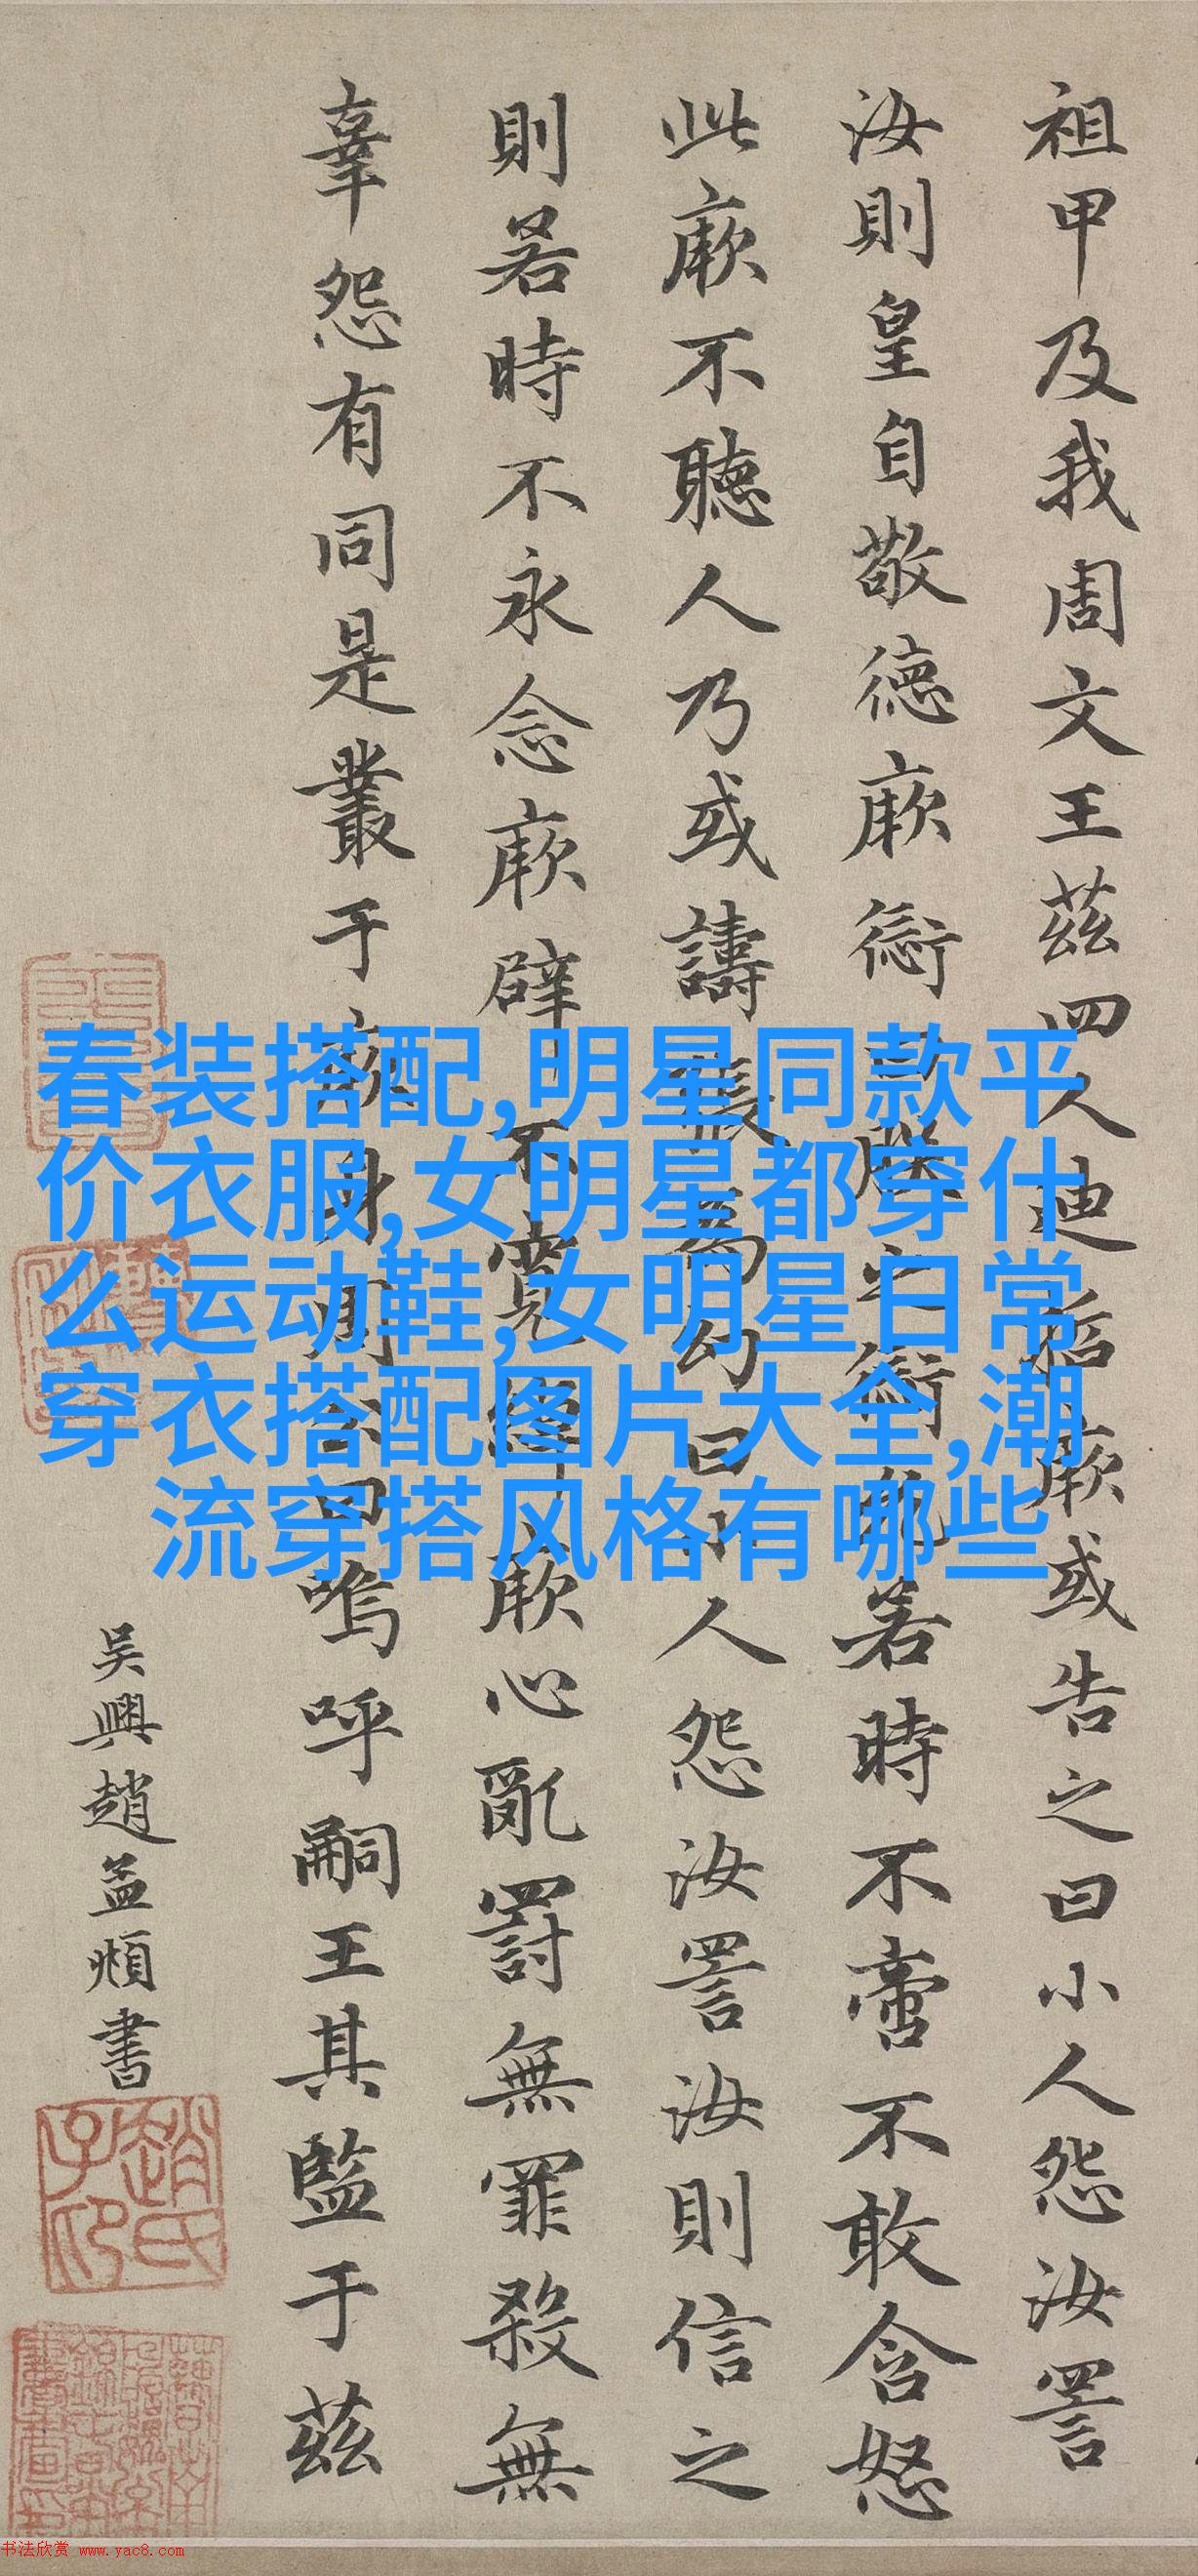 祖甲及我周文王茲四人迪哲厥或告之曰小人怨汝詈
汝則皇自敬德厥愆曰朕之愆允若時不啻不敢含怒
此厥不聽人乃或譸張為幻曰小人怨汝詈汝則信之
則若時不永念厥辟不寬綽厥心亂罰無罪殺無
辜怨有同是叢于厥身周公曰嗚呼嗣王其監于茲
吴興趙孟頫書
趙氏子昂
春装搭配,明星同款平
价衣服,女明星都穿什
么运动鞋,女明星日常
穿衣搭配图片大全,潮
流穿搭风格有哪些
书法欣赏 www.yac8.com